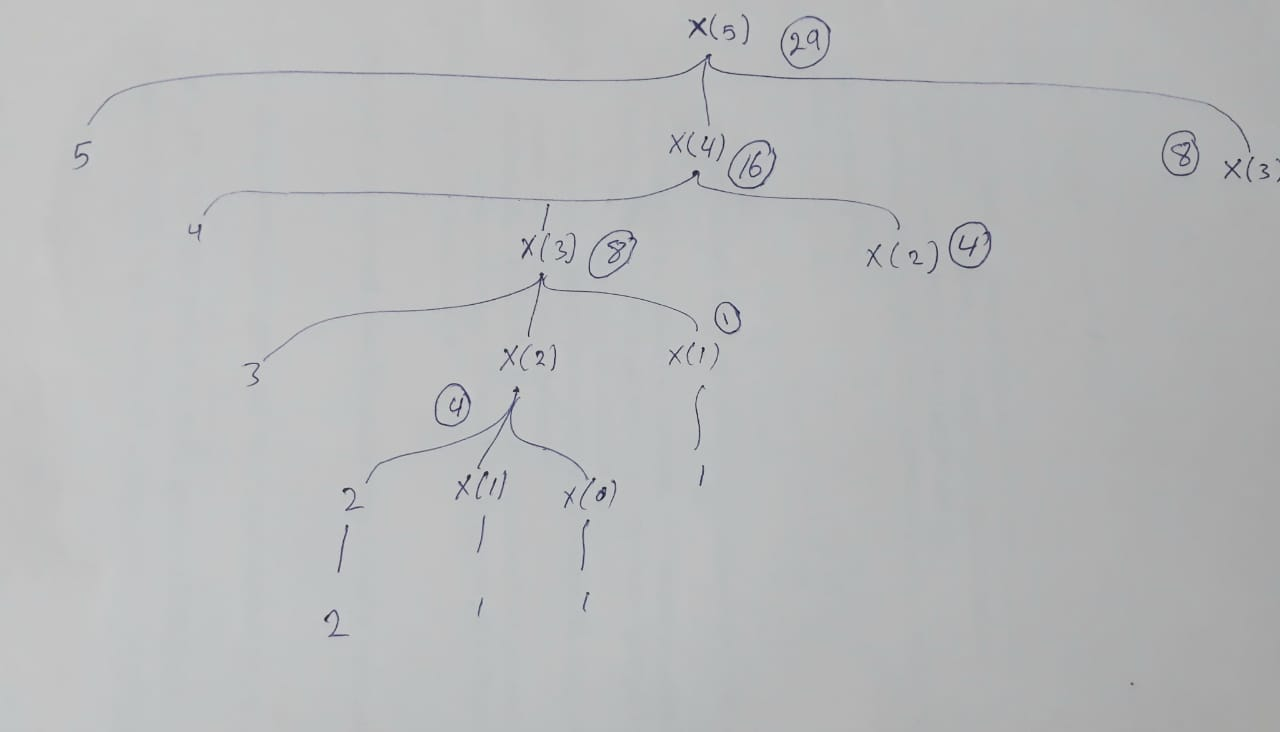 X(5) 29
5 X(4) 16 8 X(3)
4 X(3) 8 X(2) 4
3 X(2) X(1) 1
4
2 X(1) X(0) 1
2 1 1